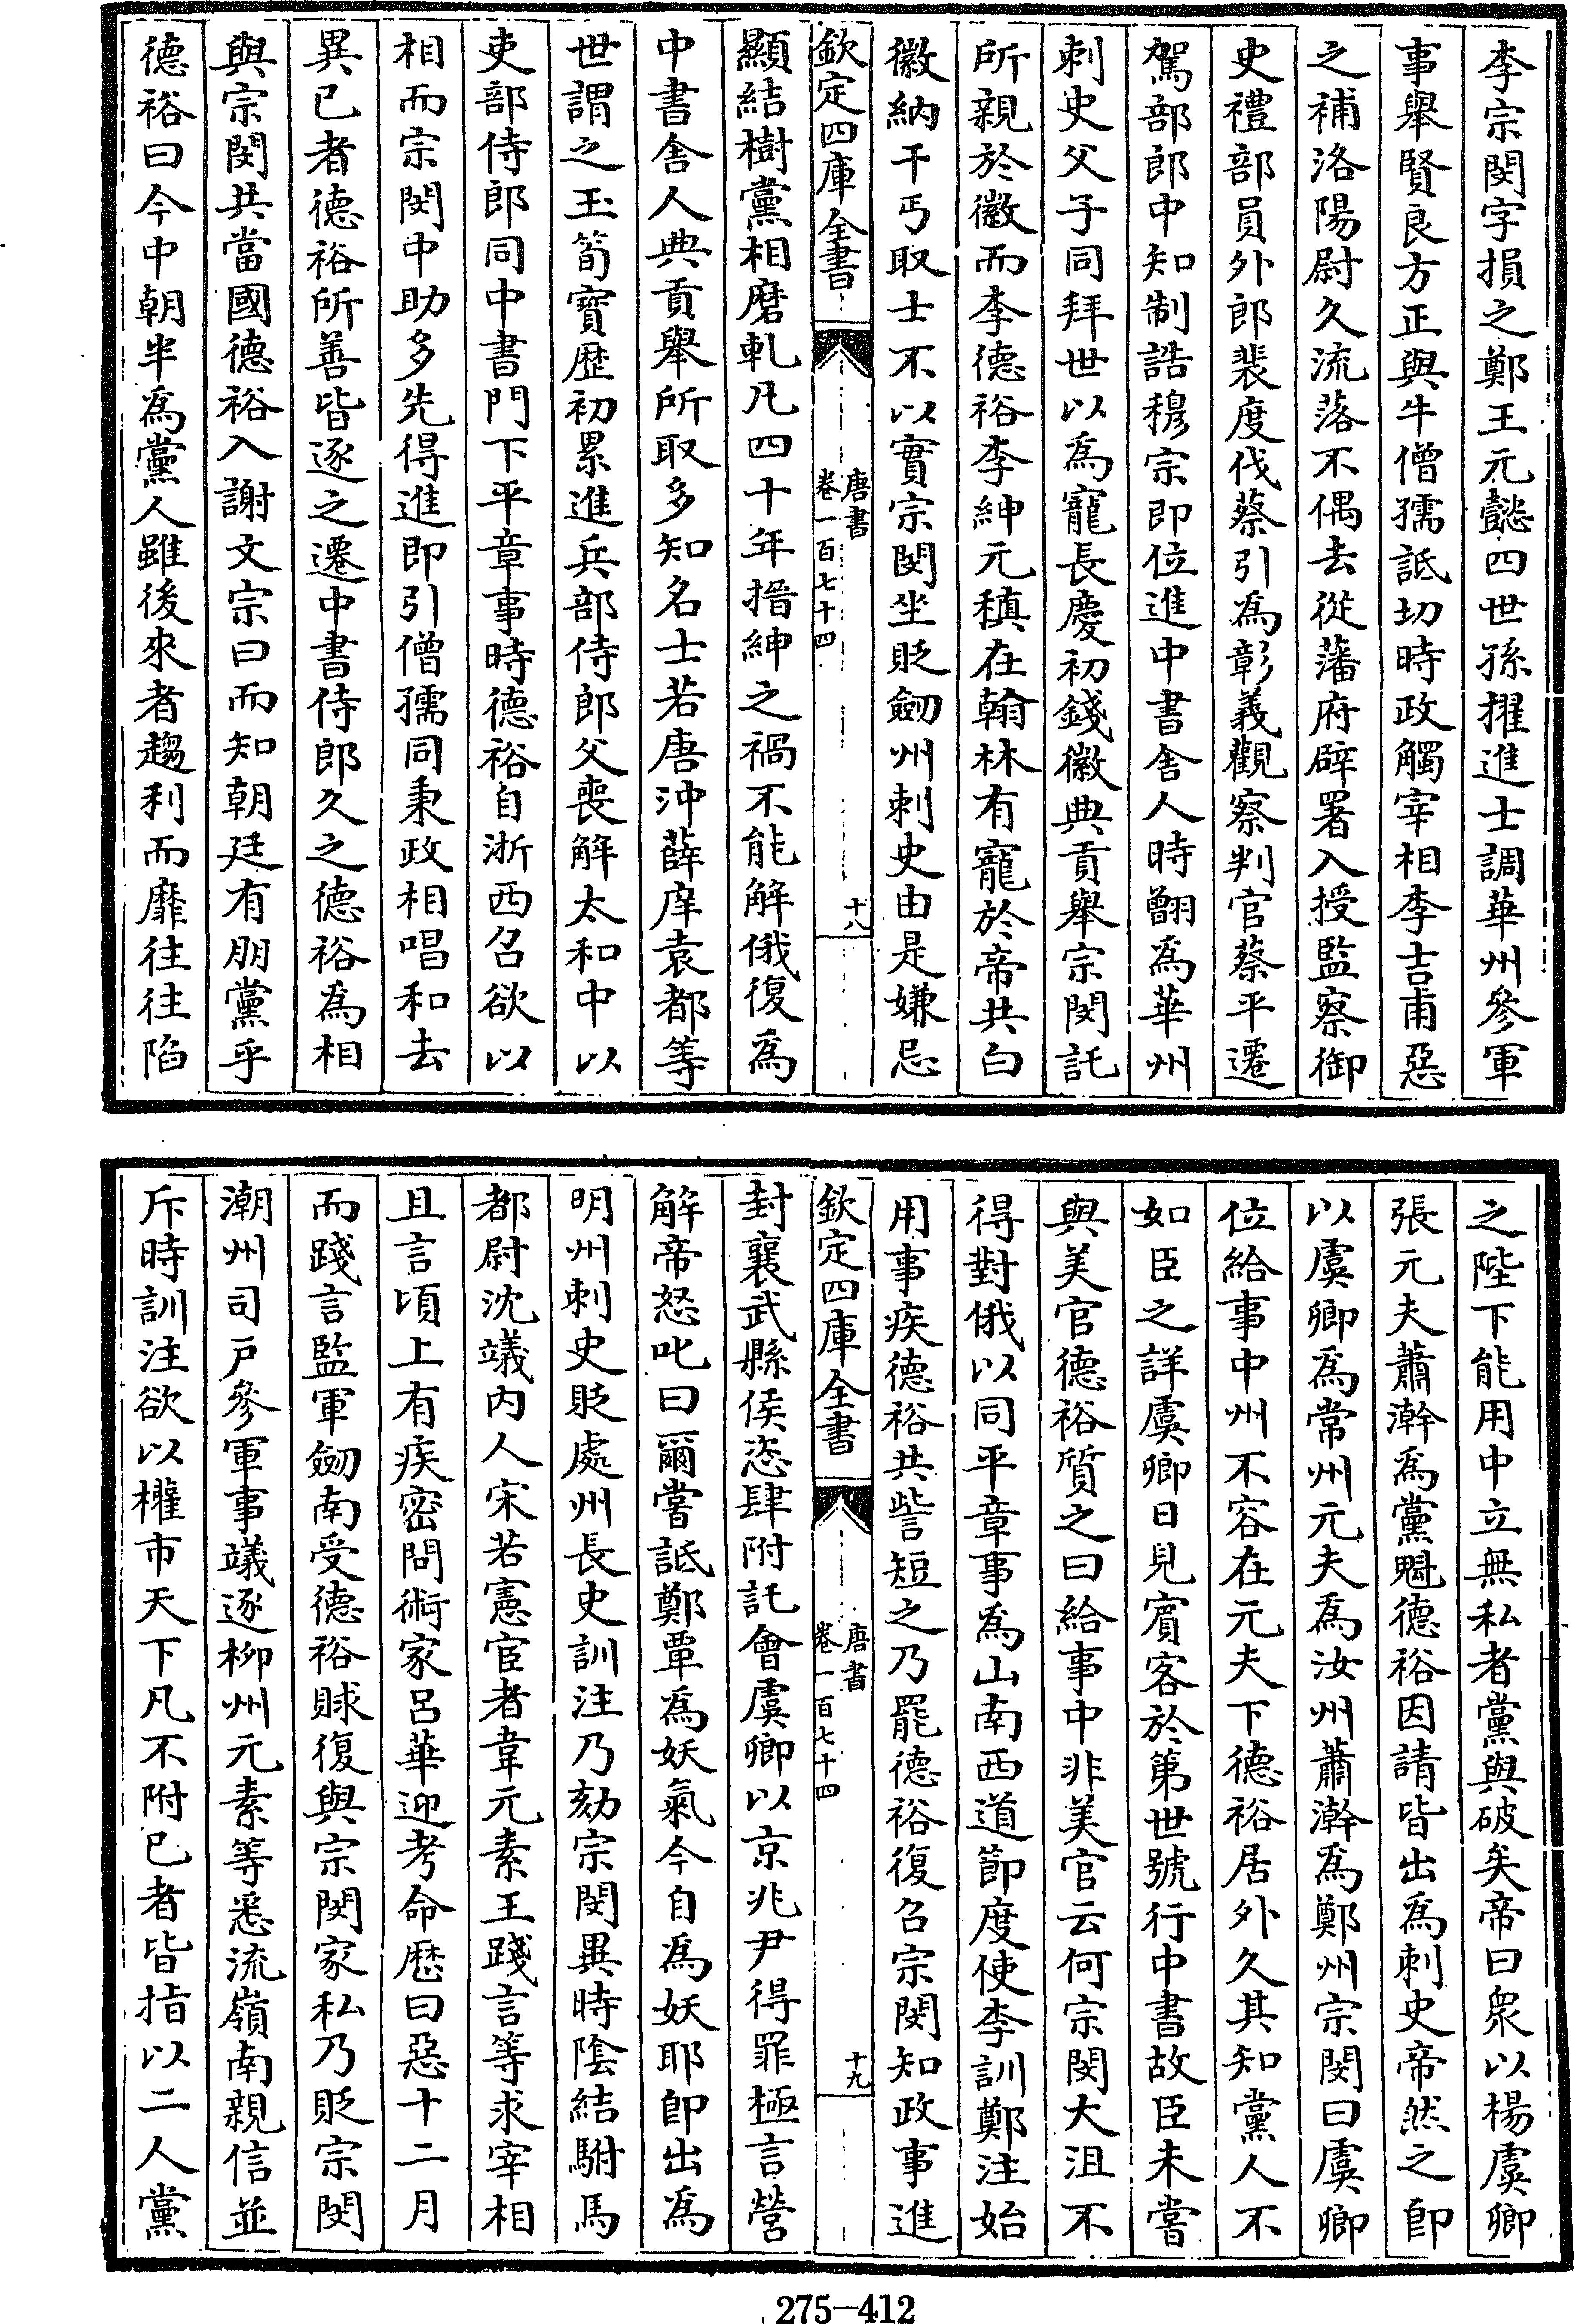 李宗閔字損之鄭王元懿四世孫擢進士調華州參軍
事舉賢良方正與牛僧孺詆切時政觸宰相李吉甫惡
之補洛陽尉久流落不偶去從藩府辟署入授監察御
史禮部員外郎裴度伐蔡引為彰義觀察判官蔡平遷
駕部郎中知制誥穆宗即位進中書舍人時翻為華州
刺史父子同拜世以為寵長慶初錢徽典貢舉宗閔託
所親於徽而李德裕李紳元稹在翰林有寵於帝共白
徽納干丐取士不以實宗閔坐貶劒州刺史由是嫌忌
欽定四庫全書
唐書
卷一百七十四
十八
顯結樹黨相磨軋凡四十年搢紳之禍不能解俄復為
中書舍人典貢舉所取多知名士若唐沖薛庠袁都等
世謂之玉筍寶歷初累進兵部侍郎父喪解太和中以
吏部侍郎同中書門下平章事時德裕自浙西召欲以
相而宗閔中助多先得進即引僧孺同秉政相唱和去
異已者德裕所善皆逐之遷中書侍郎久之德裕為相
與宗閔共當國德裕入謝文宗曰而知朝廷有朋黨乎
德裕曰今中朝半為黨人雖後來者趨利而靡往往陷
之陛下能用中立無私者黨與破矣帝曰衆以楊虞卿
張元夫蕭澣為黨魁德裕因請皆出為刺史帝然之即
以虞卿為常州元夫為汝州蕭澣為鄭州宗閔曰虞卿
位給事中州不容在元夫下德裕居外久其知黨人不
如臣之詳虞卿日見賓客於第世號行中書故臣未嘗
與美官德裕質之曰給事中非美官云何宗閔大沮不
得對俄以同平章事為山南西道節度使李訓鄭注始
用事疾德裕共訾短之乃罷德裕復召宗閔知政事進
欽定四庫全書
唐書
卷一百七十四
十九
封襄武縣侯恣肆附託會虞卿以京兆尹得罪極言營
解帝怒叱曰爾嘗詆鄭覃為妖氣今自為妖耶即出為
明州刺史貶處州長史訓注乃劾宗閔異時陰結駙馬
都尉沈䗬內人宋若憲宦者韋元素王踐言等求宰相
且言頃上有疾密問術家呂華迎考命歷曰惡十二月
而踐言監軍劒南受德裕賕復與宗閔家私乃貶宗閔
潮州司戶參軍事䗬逐柳州元素等悉流嶺南親信並
斥時訓注欲以權市天下凡不附已者皆指以二人黨
275—412